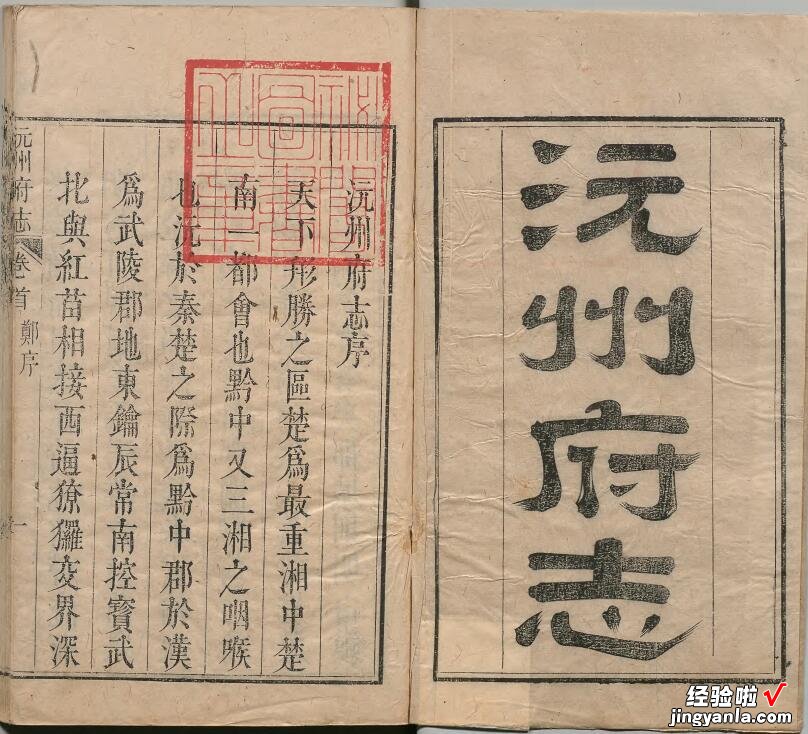 沅州府志
沅州府志序
天下形勝之區楚爲最重湘中楚
南一都會也黔中又三湘之咽喉
也沅於秦楚之際爲黔中郡於漢
爲武陵郡地東鑰辰常南控寳武
北與紅苗相接西逼獠玀交界深
沅州府志 卷首 鄭序 一
经验啦√
jingyanla.com